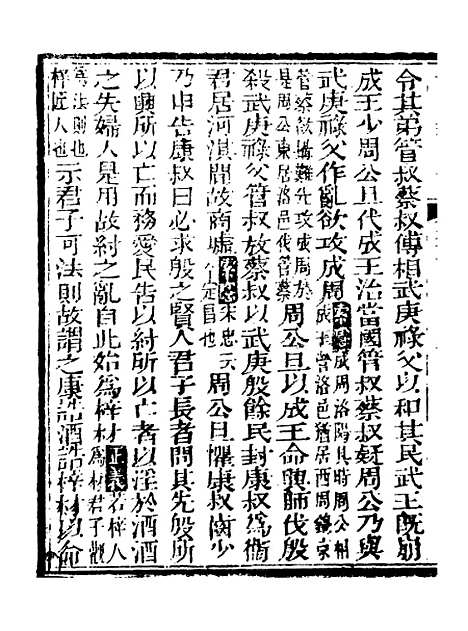 令其弟管叔蔡叔傅相武庚祿父以和其民武王既崩
成王少周公旦代成王治當國管叔蔡叔疑周公乃與
武庚祿父作亂欲攻成周索隱成周洛陽其時周公相成王營洛邑猶居西周鎬京
管蔡欲搆難先攻成周於是周公東居洛邑伐管蔡周公旦以成王命興師伐殷
殺武庚祿父管叔放蔡叔以武庚殷餘民封康叔爲衞
君居河淇閒故商墟索隱宋忠云今定昌也周公旦懼康叔齒少
乃申告康叔曰必求殷之賢人君子長者問其先殷所
以興所以亡而務愛民告以紂所以亡者以淫於酒酒
之失婦人是用故紂之亂自此始爲梓材正義若梓人爲材君子觀
爲法則也梓匠人也示君子可法則故謂之康誥酒誥梓材以命